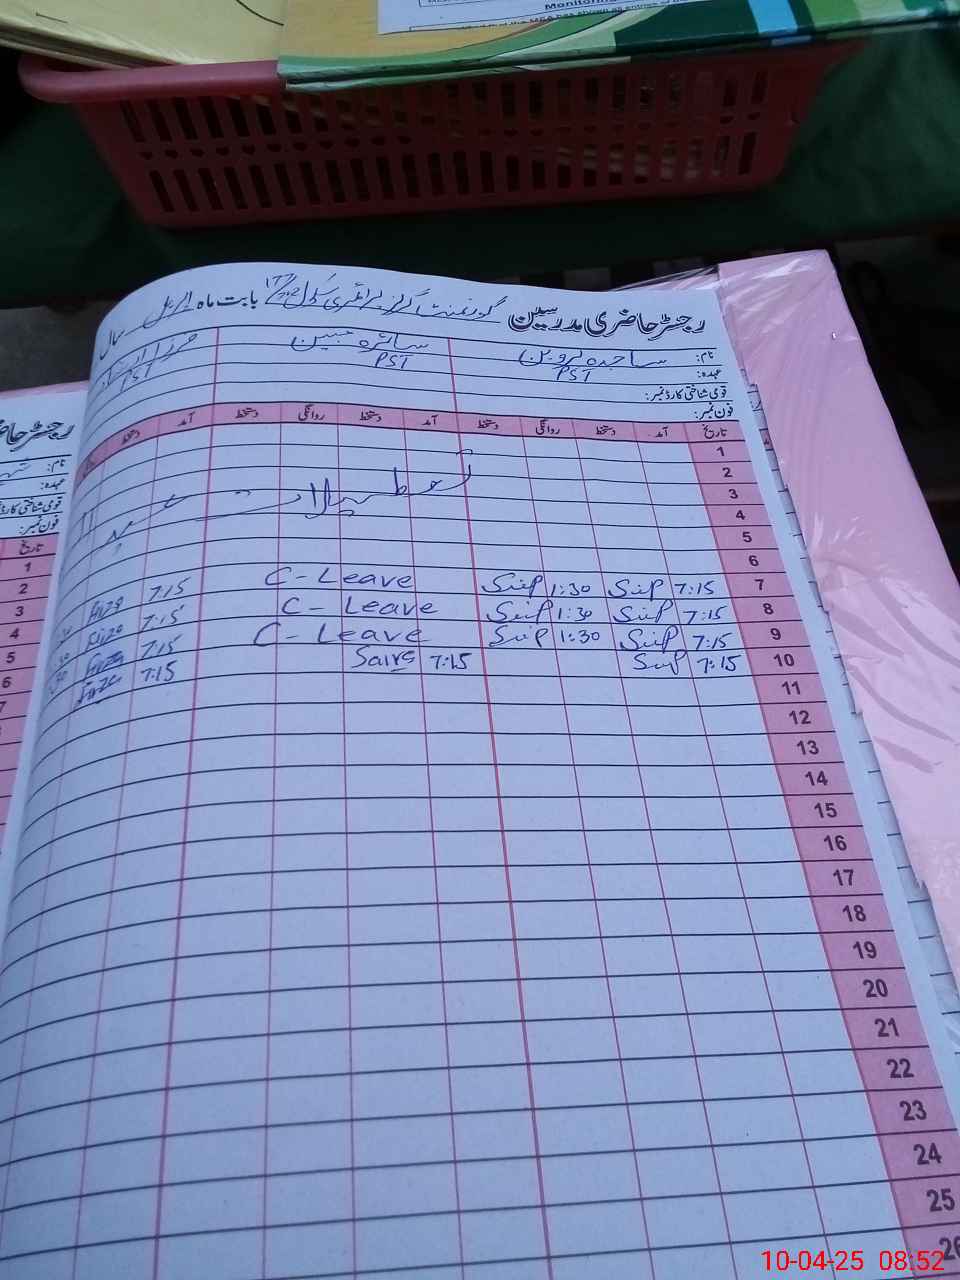 Monitoring
رجسٹر حاضری مدرسین گورنمنٹ گرلز پرائمری سکول 177/7R بابت ماہ اپریل سال
نام: ساجدہ پروین سائرہ جبین
عہدہ: PST PST PST
قومی شناختی کارڈ نمبر:
فون نمبر:
تاریخ آمد دستخط روانگی دستخط آمد دستخط روانگی دستخط آمد دستخط
1
2
3 تعطیلات عید
4
5
6
7 7:15 1:30 C-Leave 7:15
8 7:15 1:30 C-Leave 7:15
9 7:15 1:30 C-Leave 7:15
10 7:15 7:15 7:15
11
12
13
14
15
16
17
18
19
20
21
22
23
24
25
26
نام:
عہدہ:
قومی شناختی کارڈ
فون نمبر:
تاریخ
1
2
3
4
5
6
7
10-04-25 08:52